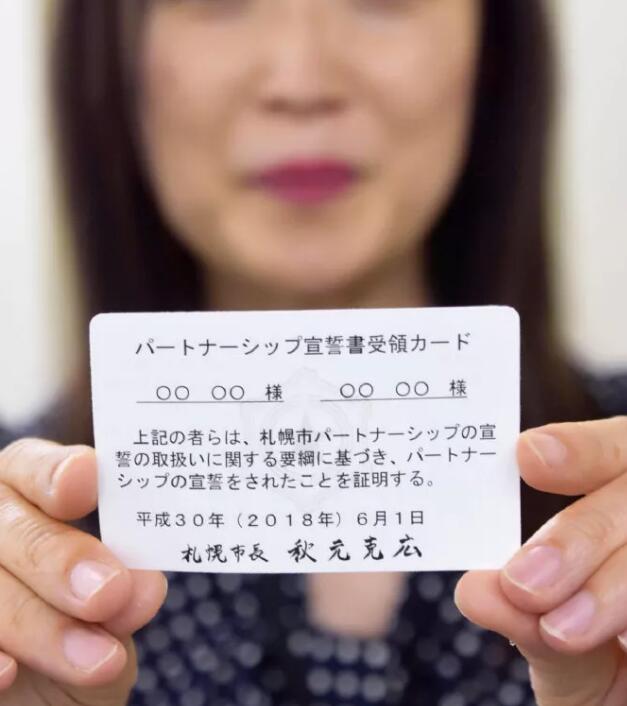 パートナーシップ宣誓書受領カード
○○ ○○ 様 ○○ ○○ 様
上記の者らは、札幌市パートナーシップの宣
誓の取扱いに関する要綱に基づき、パートナー
シップの宣誓をされたことを証明する。
平成30年（2018年）6月1日
札幌市長 秋元克広